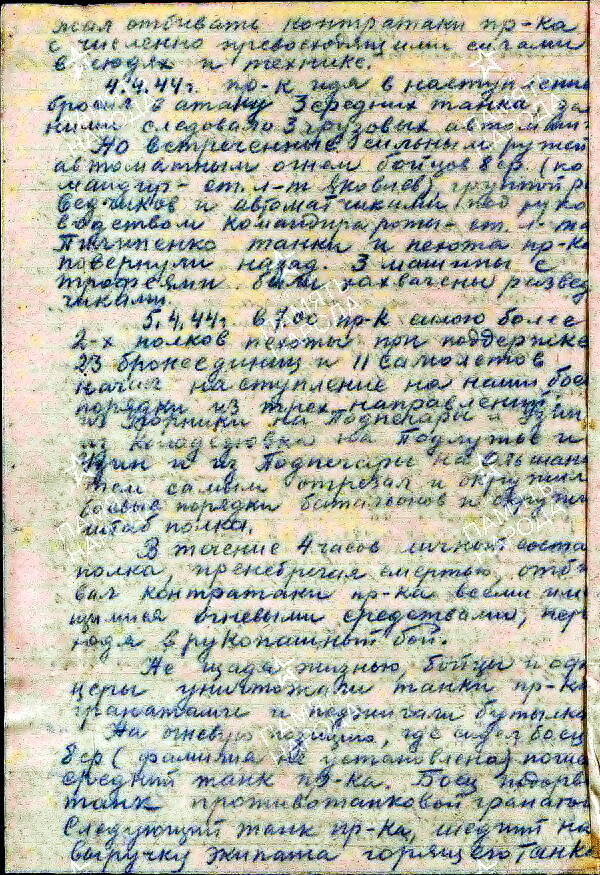 жал отбивать контратаки пр-ка
с численно превосходящими силами
в людях и технике.
4.4.44г. пр-к идя в наступление
бросил в атаку 3 средних танка, за
ними следовало 3 грузовых автомаш
Но встреченные сильным ружей
автоматным огнем бойцов 8 ср (ко
мандир - ст. л-т Яковлев), группой ра
ведчиков и автоматчиками под руко
водством командира роты - ст. л-та
Пилипенко танки и пехота пр-ка
повернули назад. 3 машины с
трофеями были захвачены развед
чиками.
5.4.44г. в 7.00 пр-к силою более
2-х полков пехоты при поддержке
23 бронеединиц и 11 самолетов
начал наступление на наши бое
порядки из трех направлений:
из на Подпечары и
из Колодеювка на Подлужье и
и из Подпечарье на Ольшани
тем самым отрезал и окружил
боевые порядки батальонов и окружил
штаб полка.
В течение 4 часов личный соста
полка, пренебрегая смертью, отби
вал контратаки пр-ка всеми име
щимися огневыми средствами, пере
ходя в рукопашный бой.
Не щадя жизнью, бойцы и офи
церы уничтожали танки пр-ка
гранатами и поджигали бутылка
На огневую позицию, где сидел боец
8 ср (фамилия не установлена) пошел
средний танк пр-ка. Боец подорва
танк противотанковой гранатой
Следующий танк пр-ка, шедший на
выручку экипажа горящего танка
ПАМЯТЬ НАРОДА